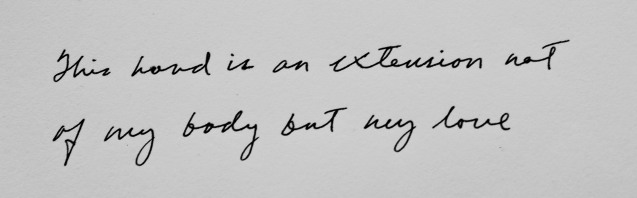 This hand is an extension not
of my body but my love